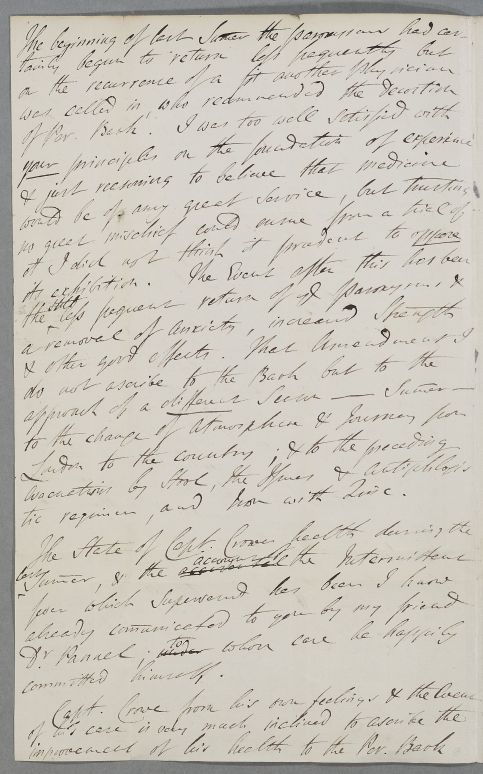 The beginning of last Sumer the paroxysm had cer-
tainly begun to return less frequently but
on the recurrence of a fit another Physician
was called in who recommended the decoction
of Per. Bark. I was too well satisfied with
your principles on the foundation of experience
& just reasoning to believe that medicine
would be of any great service, but trusting
no great mischief could ensue from a trial of
it I did not think it prudent to oppose
its exhibition. The Event after this has been
the still less frequent return of ye paroxysms, &
a removal of anxiety, increased Strength
& other good effects. That amendment I
do not ascribe to the Bark but to the
approach of a different Season — Sumer —
to the change of Atmosphere & Journey from
London to the country, & to the preceding
evacuations by Stool, the Issues & antiphlogis
tic regimen, and Iron with Zinc.
The State of Capt. Crowes health during the
last Sumer, & the account of the Intermittent
fever which Supervened has been I know
already comunicated to you by my friend
Dr Pannel, to whose care he happily
committed himself.
Capt. Crowe from his own feelings & the Event
of his case is very much inclined to ascribe the
improvement of his health to the Per. Bark